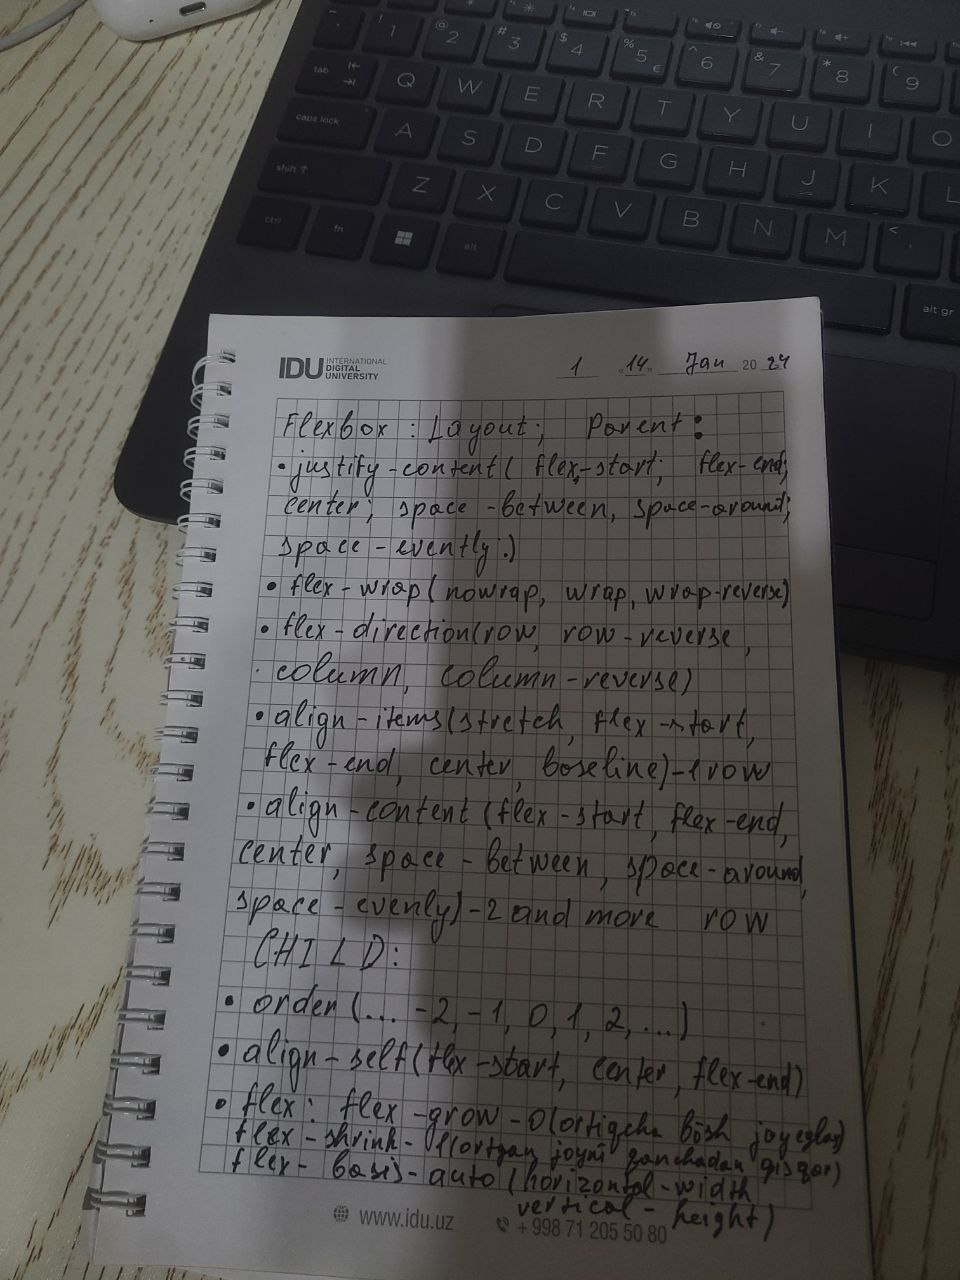 ~ ! @ # $ % ^ & * (
1 2 3 4 5 € 6 7 8 9
tab Q W E R T Y U I O
caps lock A S D F G H J K L
shift Z X C V B N M < ,
ctrl fn alt alt gr
IDU INTERNATIONAL DIGITAL UNIVERSITY
1 "14" Jan 20 24
Flexbox : Layout; Parent:
• justify-content( flex-start; flex-end;
center; space-between, space-around;
space-evently.)
• flex-wrap(nowrap, wrap, wrap-reverse)
• flex-direction(row, row-reverse,
column, column-reverse)
• align-items(stretch, flex-start,
flex-end, center, baseline)-1 row
• align-content (flex-start, flex-end,
center, space-between, space-around,
space-evenly)-2 and more row
CHILD:
• order (... -2, -1, 0, 1, 2, ...)
• align-self(flex-start, center, flex-end)
• flex: flex-grow-0(ortiqcha bo'sh
flex-shrink-1(ortgan joyni qanchadan
flex-basis-auto (horizontal-width
vertical-height)
www.idu.uz + 998 71 205 50 80